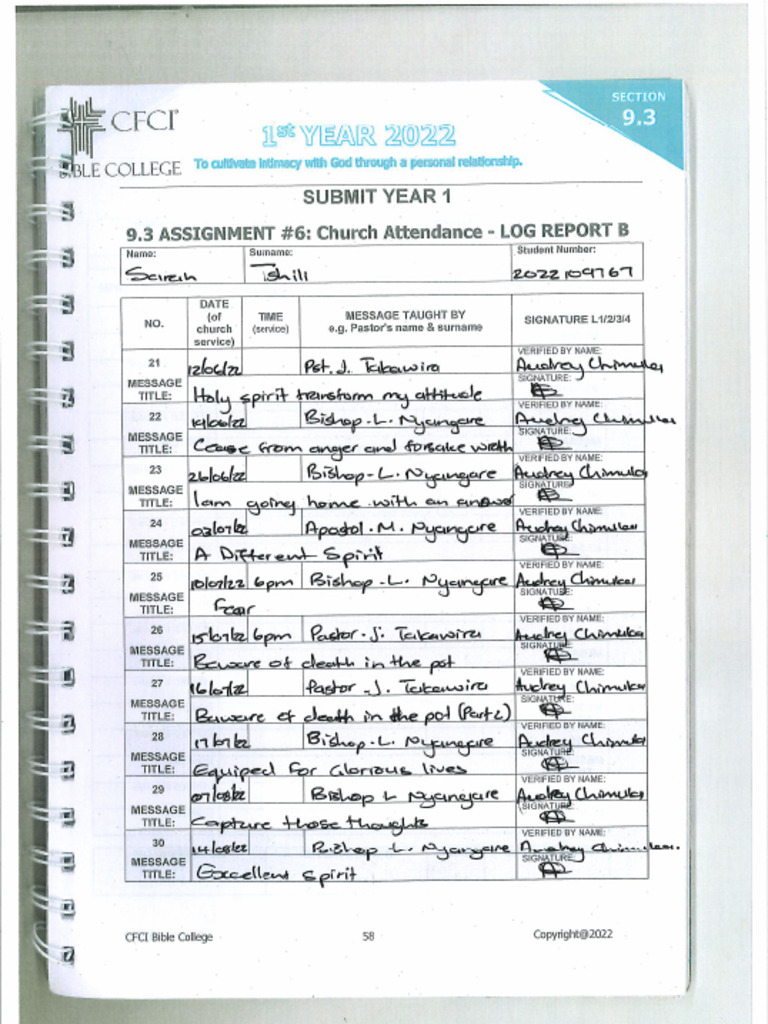 CFCI
BIBLE COLLEGE
SECTION
9.3
1st YEAR 2022
To cultivate intimacy with God through a personal relationship.
SUBMIT YEAR 1
9.3 ASSIGNMENT #6: Church Attendance - LOG REPORT B
Name: Surname: Student Number:
Sarah Tshili 2022109767
NO. DATE (of church service) TIME (service) MESSAGE TAUGHT BY e.g. Pastor's name & surname SIGNATURE L1/2/3/4
21 12/06/22 Pst. J. Takawira VERIFIED BY NAME: Audrey Chimuka
MESSAGE TITLE: Holy spirit transform my attitude SIGNATURE:
22 /06/22 Bishop - L. Nyangare VERIFIED BY NAME: Audrey Chimuka
MESSAGE TITLE: Cease from anger and forsake wrath SIGNATURE:
23 26/06/22 Bishop - L. Nyangare VERIFIED BY NAME: Audrey Chimuka
MESSAGE TITLE: I am going home with an answer SIGNATURE:
24 03/07/22 Apostol. M. Nyangare VERIFIED BY NAME: Audrey Chimuka
MESSAGE TITLE: A Different Spirit SIGNATURE:
25 10/07/22 6pm Bishop - L. Nyangare VERIFIED BY NAME: Audrey Chimuka
MESSAGE TITLE: Fear SIGNATURE:
26 15/07/22 6pm Pastor - J. Takawira VERIFIED BY NAME: Audrey Chimuka
MESSAGE TITLE: Beware of death in the pot SIGNATURE:
27 16/07/22 Pastor - J. Takawira VERIFIED BY NAME: Audrey Chimuka
MESSAGE TITLE: Beware of death in the pot (Part 2) SIGNATURE:
28 17/07/22 Bishop - L. Nyangare VERIFIED BY NAME: Audrey Chimuka
MESSAGE TITLE: Equiped for Glorious lives SIGNATURE:
29 07/08/22 Bishop L Nyangare VERIFIED BY NAME: Audrey Chimuka
MESSAGE TITLE: Capture those thoughts SIGNATURE:
30 14/08/22 Bishop - L. Nyangare VERIFIED BY NAME: Audrey
MESSAGE TITLE: Excellent spirit SIGNATURE:
CFCI Bible College 58 Copyright@2022